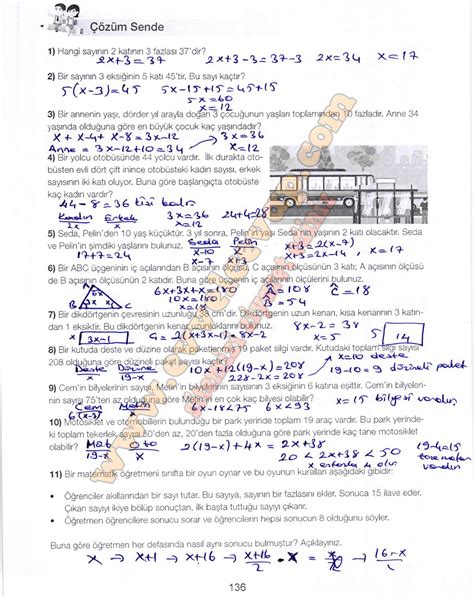 Çözüm Sende
1) Hangi sayının 2 katının 3 fazlası 37'dir?
2x+3=37 2x+3-3=37-3 2x=34 x=17
2) Bir sayının 3 eksiğinin 5 katı 45'tir. Bu sayı kaçtır?
5(x-3)=45 5x-15+15=45+15
5x=60
x=12
3) Bir annenin yaşı, dörder yıl arayla doğan 3 çocuğunun yaşları toplamından 10 fazladır. Anne 34
yaşında olduğuna göre en büyük çocuk kaç yaşındadır?
x + x-4 + x-8 = 3x-12 3x=36
Anne = 3x-12+10=34 x=12
4) Bir yolcu otobüsünde 44 yolcu vardır. İlk durakta oto-
büsten evli dört çift inince otobüsteki kadın sayısı, erkek
sayısının iki katı oluyor. Buna göre başlangıçta otobüste
kaç kadın vardır?
44-8=36 kişi kaldı
Kadın Erkek 3x=36 24+4=28
2x x x=12
5) Seda, Pelin'den 10 yaş küçüktür. 3 yıl sonra, Pelin'in yaşı Seda'nın yaşının 2 katı olacaktır. Seda
ve Pelin'in şimdiki yaşlarını bulunuz.
Seda Pelin x+3=2(x-7)
17+7=24 x-10 x x+3=2x-14 x=17
x-7 x+3
6) Bir ABC üçgeninin iç açılarından B açısının ölçüsü, C açısının ölçüsünün 3 katı; A açısının ölçüsü
de B açısının ölçüsünün 2 katıdır. Buna göre üçgenin iç açılarının ölçülerini bulunuz.
6x+3x+x=180 A=108
10x=180 B=54 C=18
x=18
7) Bir dikdörtgenin çevresinin uzunluğu 38 cm'dir. Dikdörtgenin uzun kenarı, kısa kenarının 3 katın-
dan 1 eksiktir. Bu dikdörtgenin kenar uzunluklarını bulunuz.
3x-1 x Ç=2(x+3x-1)=8x-2 8x-2=38 x=5 5 14
8) Bir kutuda deste ve düzine olarak paketlenmiş 19 paket silgi vardır. Kutudaki toplam silgi sayısı
208 olduğuna göre düzineli paket sayısı kaçtır?
x=10 deste
Deste Düzine 10x+12(19-x)=208 19-10=9 düzineli paket
x 19-x 228-2x=208
9) Cem'in bilyelerinin sayısı, Metin'in bilyelerinin sayısının 3 eksiğinin 6 katına eşittir. Cem'in bilyeleri-
nin sayısı 75'ten az olduğuna göre Metin'in en çok kaç bilyesi olabilir?
Cem Metin 6x-18<75 6x<93 x=15 bilyesi vardır
6(x-3) x
10) Motosiklet ve otomobillerin bulunduğu bir park yerinde toplam 19 araç vardır. Bu park yerinde-
ki toplam tekerlek sayısı 50'den az, 20'den fazla olduğuna göre park yerinde kaç tane motosiklet
olabilir?
Mot Oto 2(19-x)+4x=2x+38 19-4=15
19-x x 20<2x+38<50 tane motor
x en fazla 4 olur vardır
11) Bir matematik öğretmeni sınıfta bir oyun oynar ve bu oyunun kuralları aşağıdaki gibidir:
• Öğrenciler akıllarından bir sayı tutar. Bu sayıya, sayının bir fazlasını ekler. Sonuca 15 ilave eder.
Çıkan sayıyı ikiye bölüp sonuçtan, ilk başta tuttuğu sayıyı çıkarır.
• Öğretmen öğrencilere sonucu sorar ve öğrencilerin hepsi sonucun 8 olduğunu söyler.
Buna göre öğretmen her defasında nasıl aynı sonucu bulmuştur? Açıklayınız.
x → x+1 → x+16 → x+16/2
136